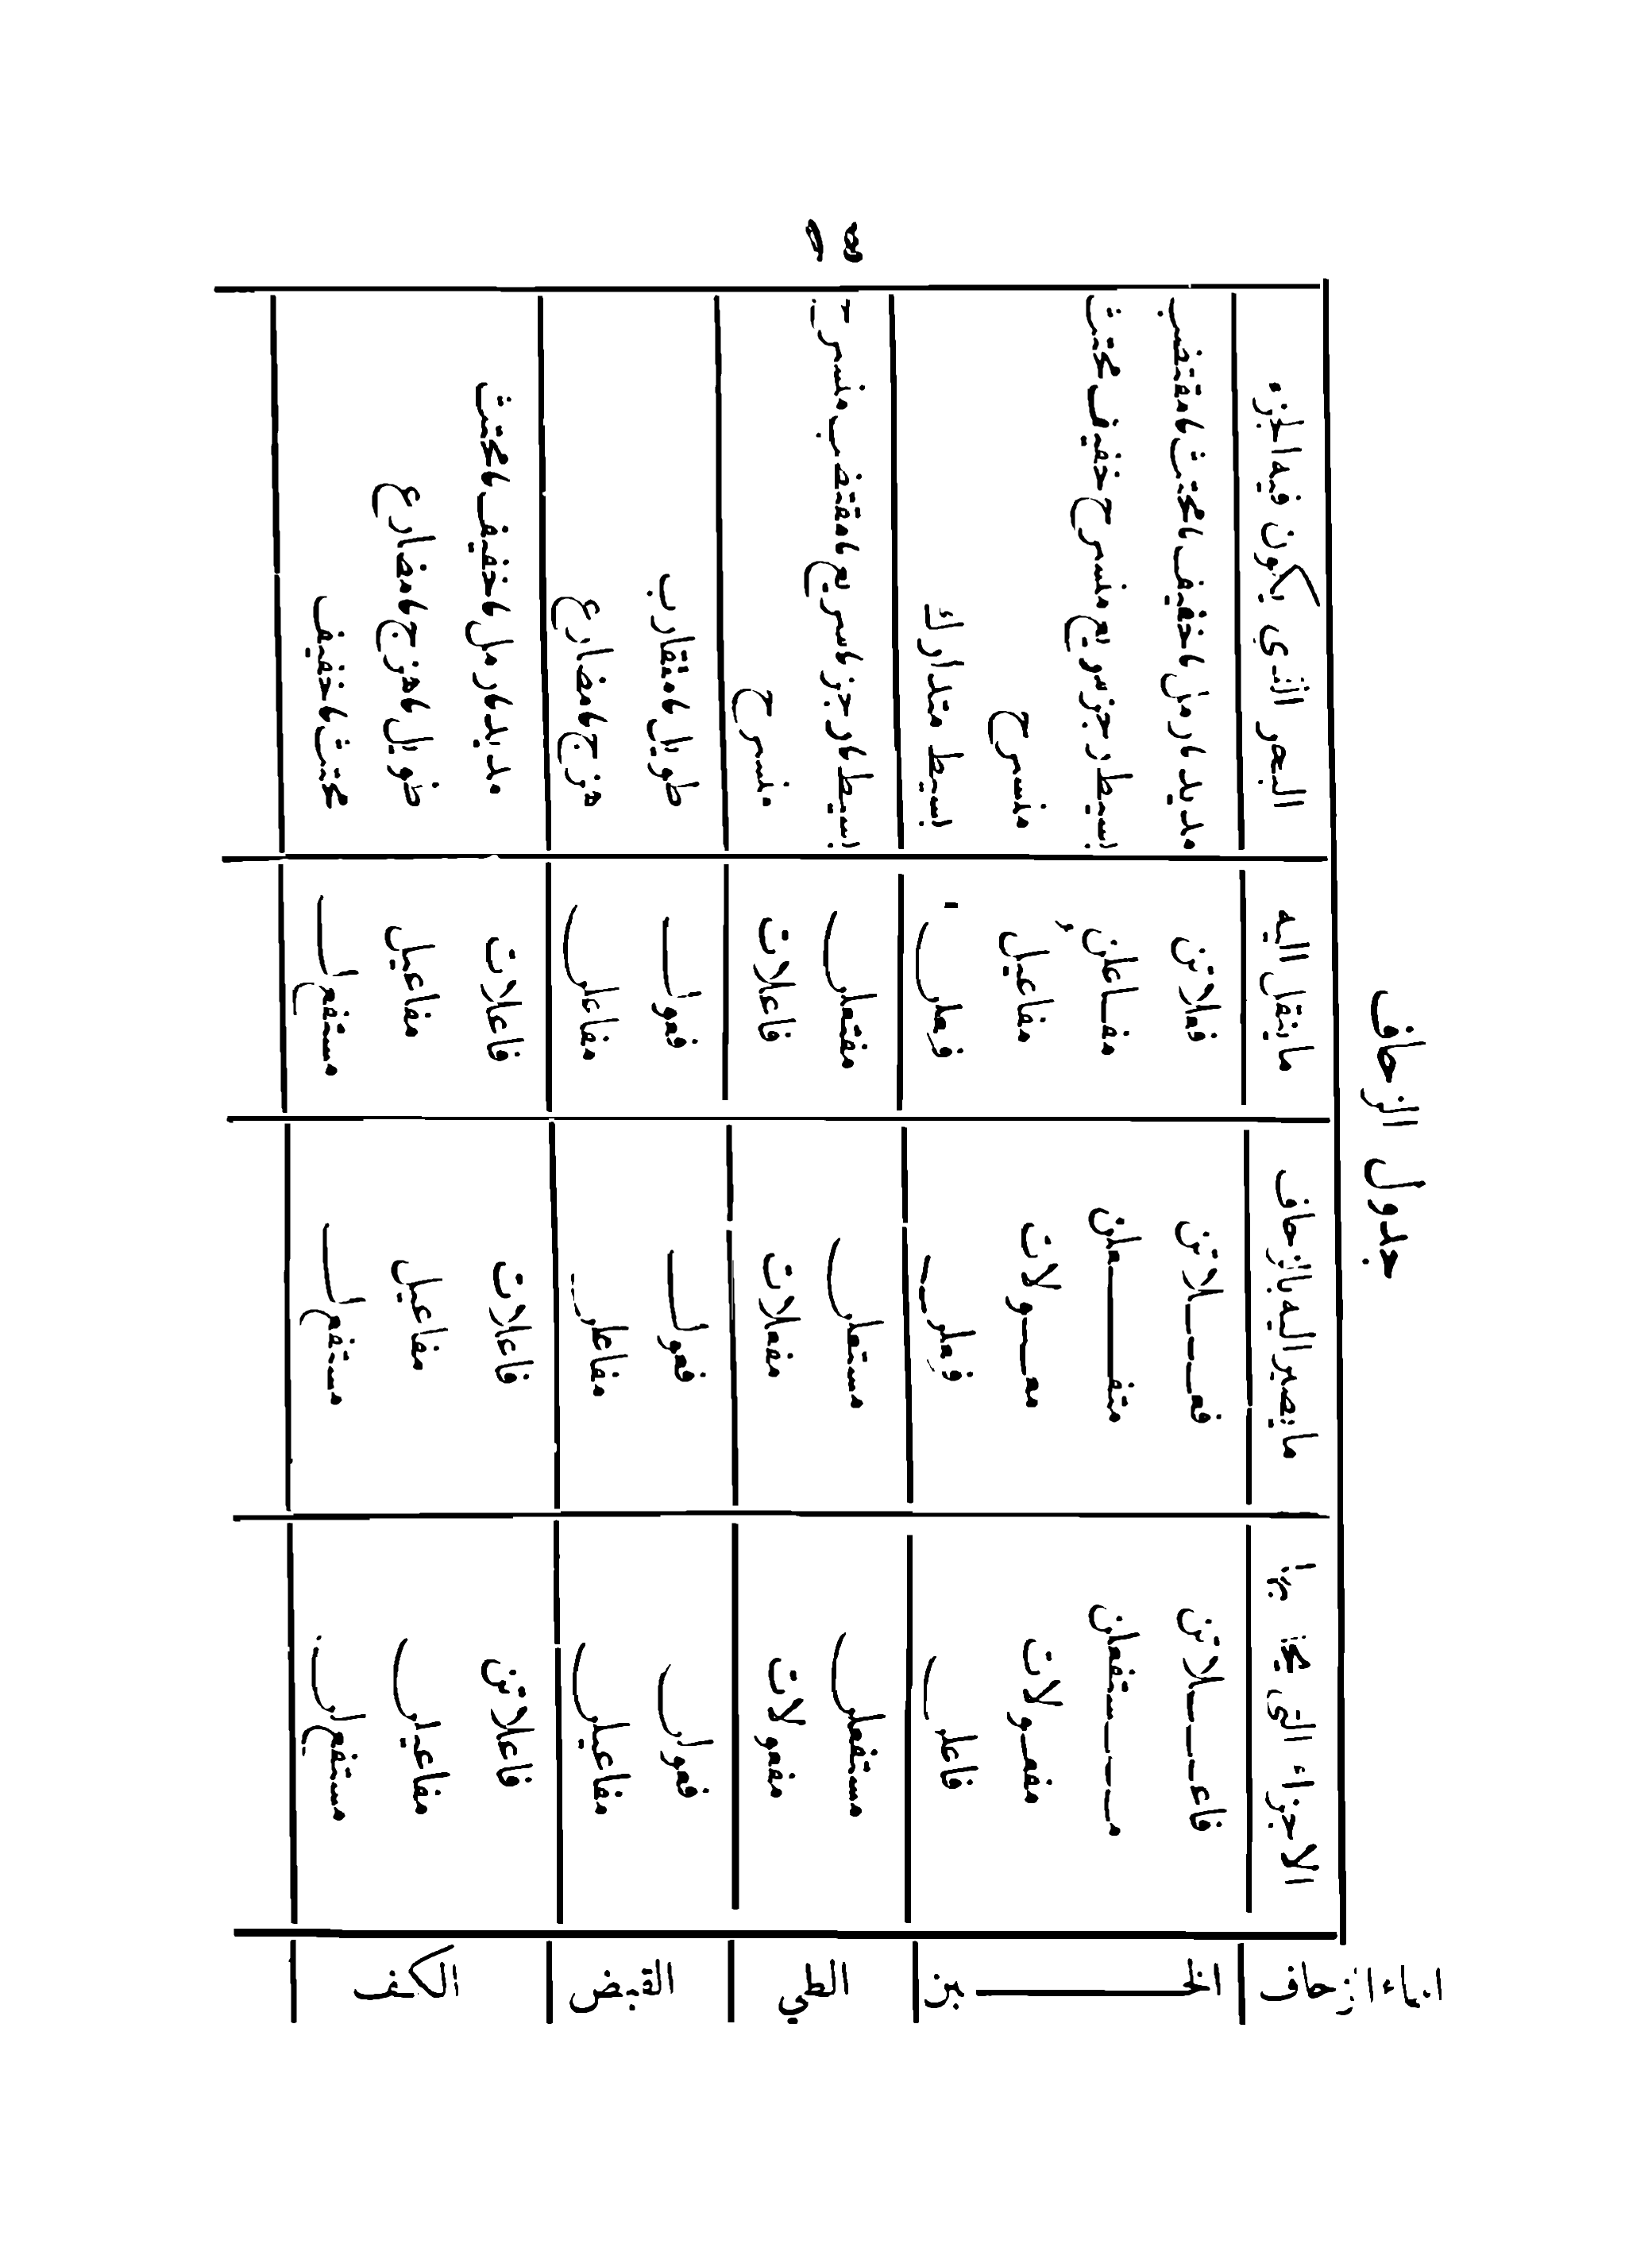 جدول الزحاف
اسماء الزحاف الاجزاء التي ما يصير اليه بالزحاف ما ينقل اليه البحر الذي يكون فيه الجزء
الخبن فاعلاتن فعلاتن فعلاتن مديد، رمل، خفيف، مجتث، مقتضب
مستفعلن متفعلن مفاعلن بسيط رجز سريع منسرح خفيف مجتث
مفعولات معولات مفاعيل منسرح
فاعلن فعلن فعلن بسيط متدارك
الطي مستفعلن مستعلن مفتعلن بسيط، رجز، سريع، مقتضب منسرح
مفعولات مفعلات فاعلات منسرح
القبض فعولن فعول فعول طويل، متقارب
مفاعيلن مفاعلن مفاعلن هزج، مضارع
الكف فاعلاتن فاعلات فاعلات مديد، رمل، خفيف، مجتث
مفاعيلن مفاعيل مفاعيل طويل، هزج، مضارع
مستفع لن مستفع ل مستفع ل مجتث، خفيف